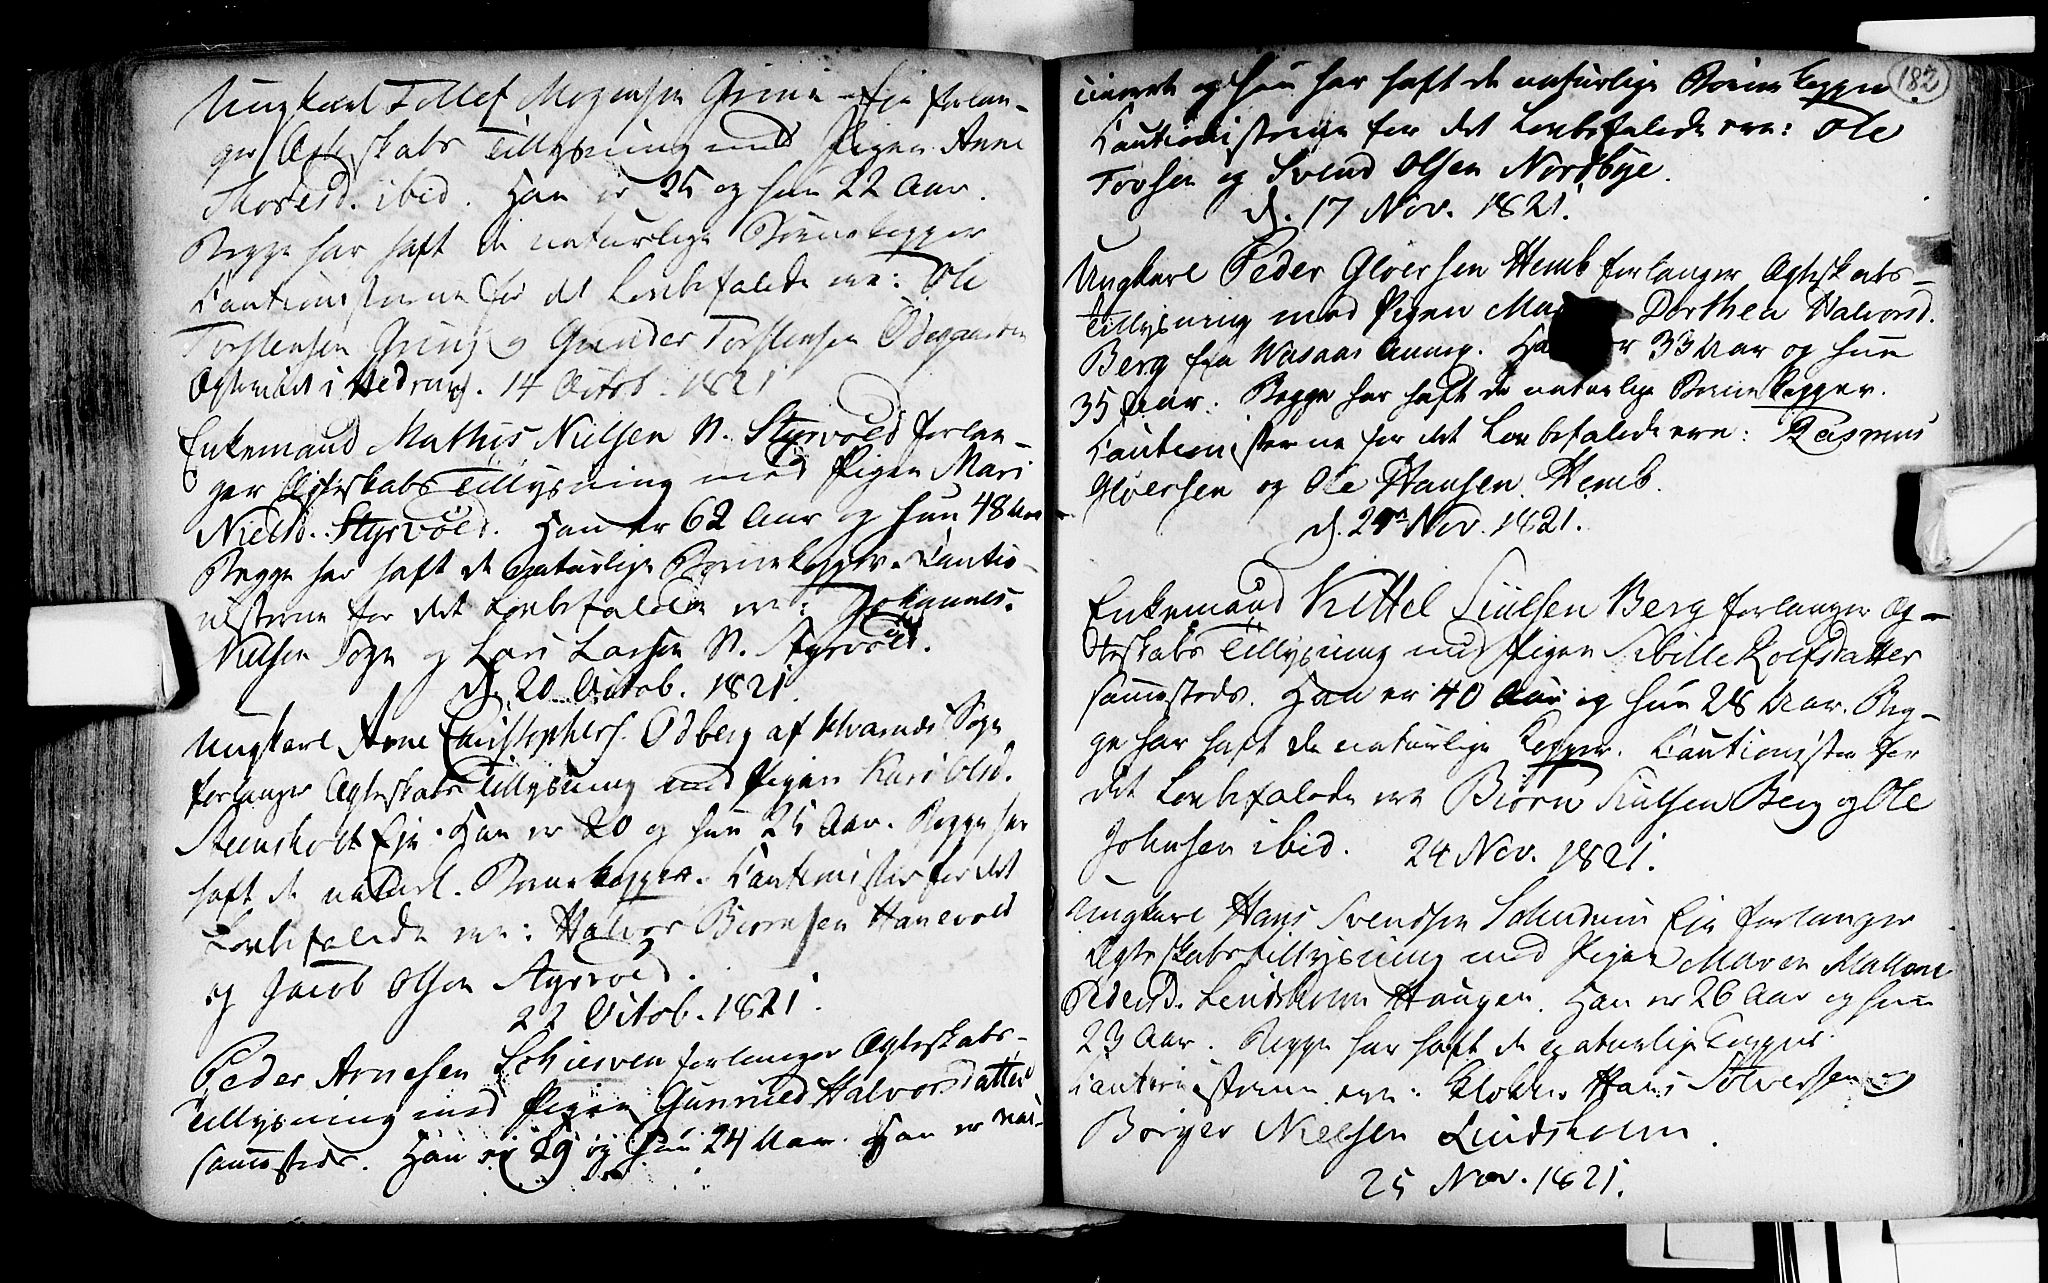 Ungkarl Tollef Mogensen Grine-Eje forlan-
ger Ægteskabs Tillysning med Pigen Anne
Thoresd. ibid. Han er 25 og hun 22 Aar.
Begge har haft de naturlige Børnekopper
Cautionisterne for det Lovbefalede ere: Ole
Torstensen Grine og Gunder Torstensen Ødegaarden
i Hedrum. 14 Octob. 1821
Enkemand Mathis Nielsen N. Styrvold forlan-
ger Ægteskabs Tillysning med Pigen Mari
Nielsd. Styrvold. Han er 62 Aar og hun 48 Aar
Begge har haft de naturlige Børnekopper. Cautio-
nisterne for det Lovbefalede ere: Johannes
Nielsen Sogn og Lars Larsen N. Styrvold.
d. 20 Octob. 1821.
Ungkarl Arne Christophers. Odberg af Qvarnes Sogn
forlanger Ægteskabs Tillysning med Pigen Kari Olsd.
Steensholt Eje. Han er 20 og hun 25 Aar. Begge har
haft de naturl. Børnekopper. Cautionister for det
Lovbefalede ere: Halvor Biørnsen Hanevold
og Jacob Olsen Styrvold.
22 Octob. 1821.
Peder Arnesen Schiesven forlanger Ægteskabs-
Tillysning med Pigen Gunnild Halvorsdatter
sammesteds. Han er 29 og hun 24 Aar. Han er vac-
182
cineret og hun har haft de naturlige Børnekopper.
Cautionisterne for det Lovbefalede ere: Ole
Tovsen og Svend Olsen Nordbye.
d. 17 Nov. 1821.
Ungkarl Peder Gloersen Hemb forlanger Ægteskabs-
Tillysning med Pigen Ma Dorthea Halvorsd.
Berg fra Wasaas Annex. Han er 33 Aar og hun
35 Aar. Begge har haft de naturlige Børnekopper.
Cautionisterne for det Lovbefalede ere: Rasmus
Gloersen og Ole Hansen Hemb.
d. Nov. 1821.
Enkemand Kittel Siulsen Berg forlanger Æg-
teskabs Tillysning med Pigen Sibille Rolfsdatter
sammesteds. Han er 40 Aar og hun 28 Aar. Beg-
ge har haft de naturlige Kopper. Cautionister for
det Lovbefalede ere Biørn Siulsen Berg og Ole
Johnsen ibid. 24 Nov. 1821.
Ungkarl Hans Svendsen Eje forlanger
Ægteskabstillysning med Pigen Maren Mallene
Pedersd. Lendsholm Haugen. Han er 26 Aar og hun
23 Aar. Begge har haft de naturlige Kopper.
Cautionisterne ere: Klokker Hans Sølversen og
Borger Nielsen Lindsholm.
25 Nov. 1821.